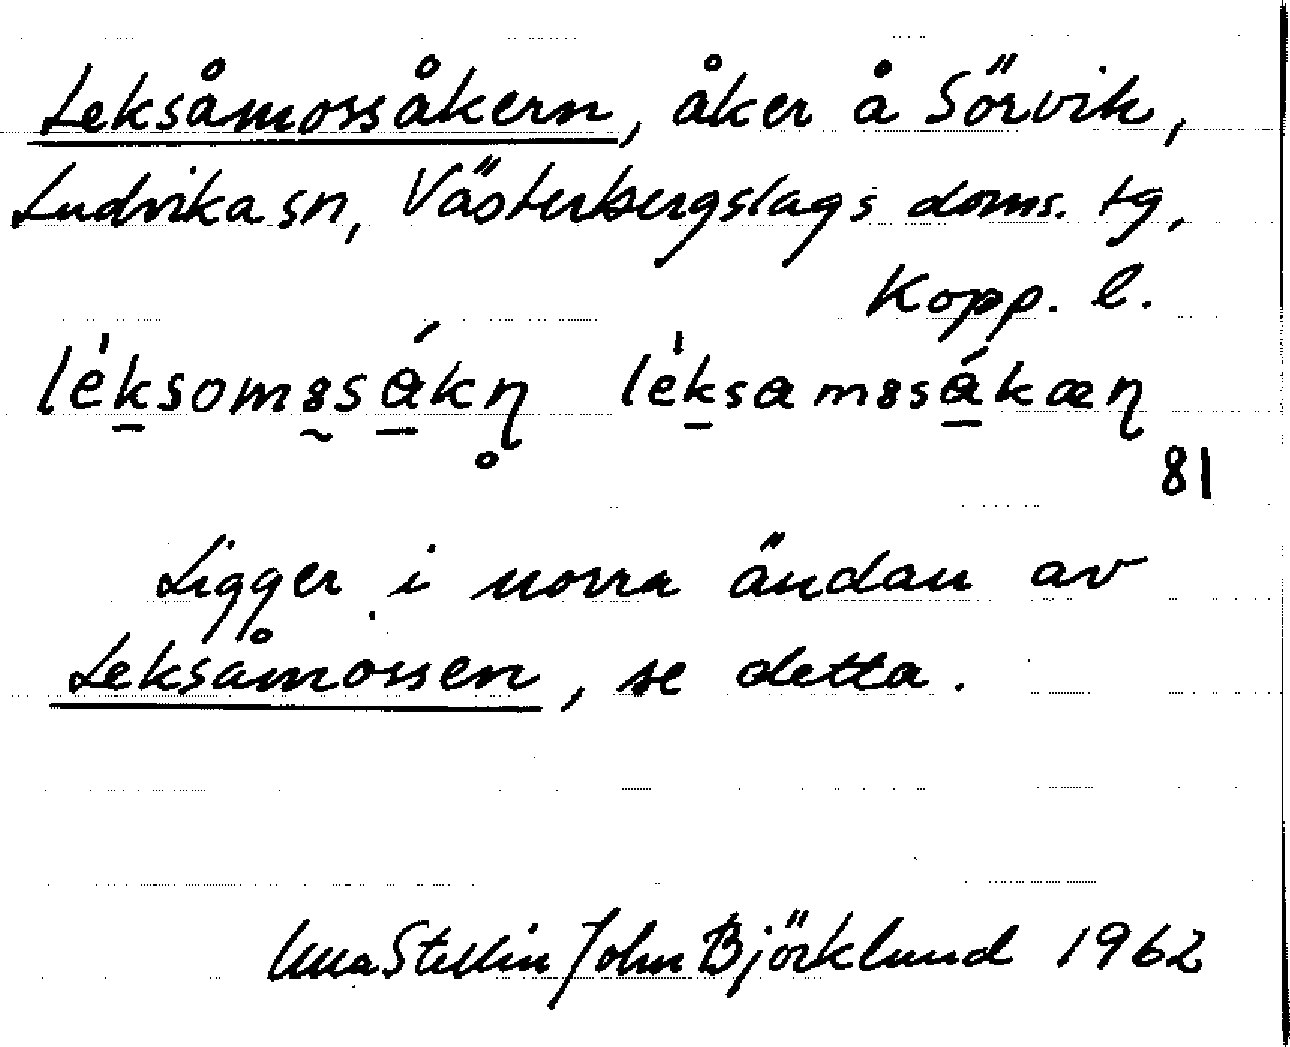 Leksåmossåkern, åker å Sörvik,
Ludvika sn, Västerbergslags doms. tg,
Kopp. l.
81
Ligger i norra ändan av
Leksåmossen, se detta.
John Björklund 1962